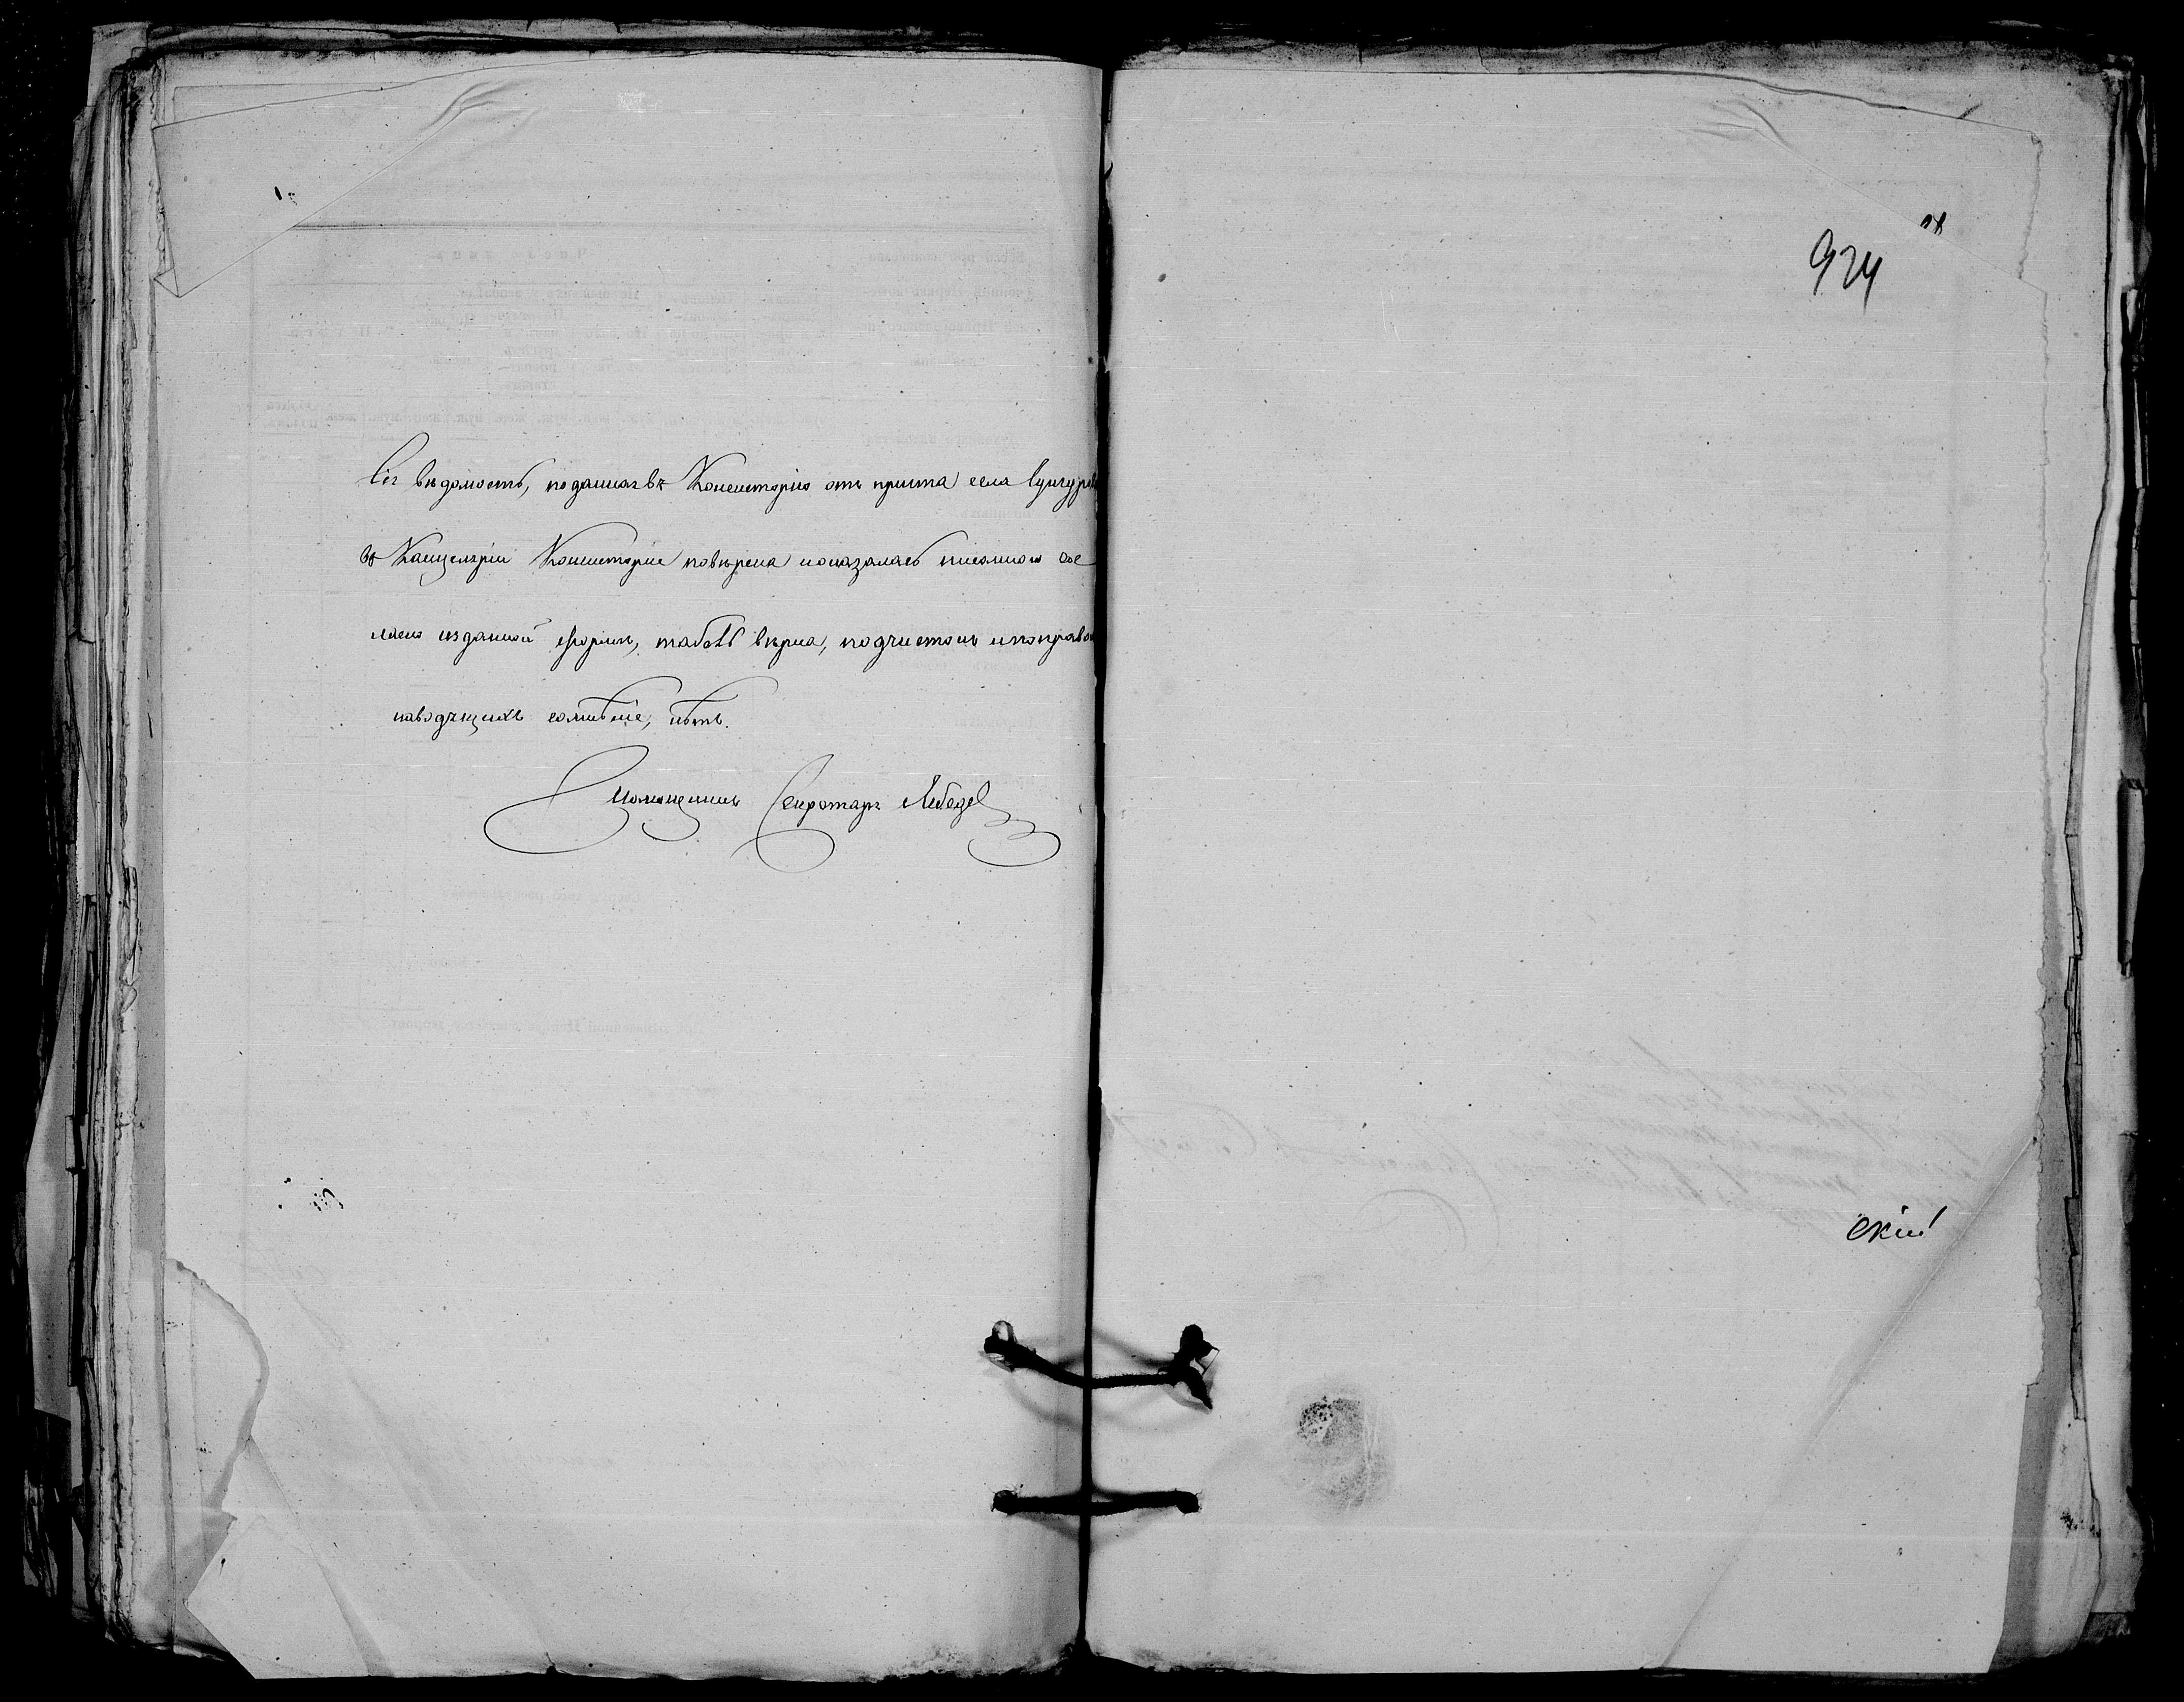 Сія вѣдомость, поданная въ Консисторію отъ причта села
въ Канцеляріи Консисторіи повѣрена и оказалась писанною со
гласно изданной формы, табель вѣрна, подчистокъ и поправок
наводящихъ сомнѣніе, нѣтъ.
Секретарь Лебедев
924
скій